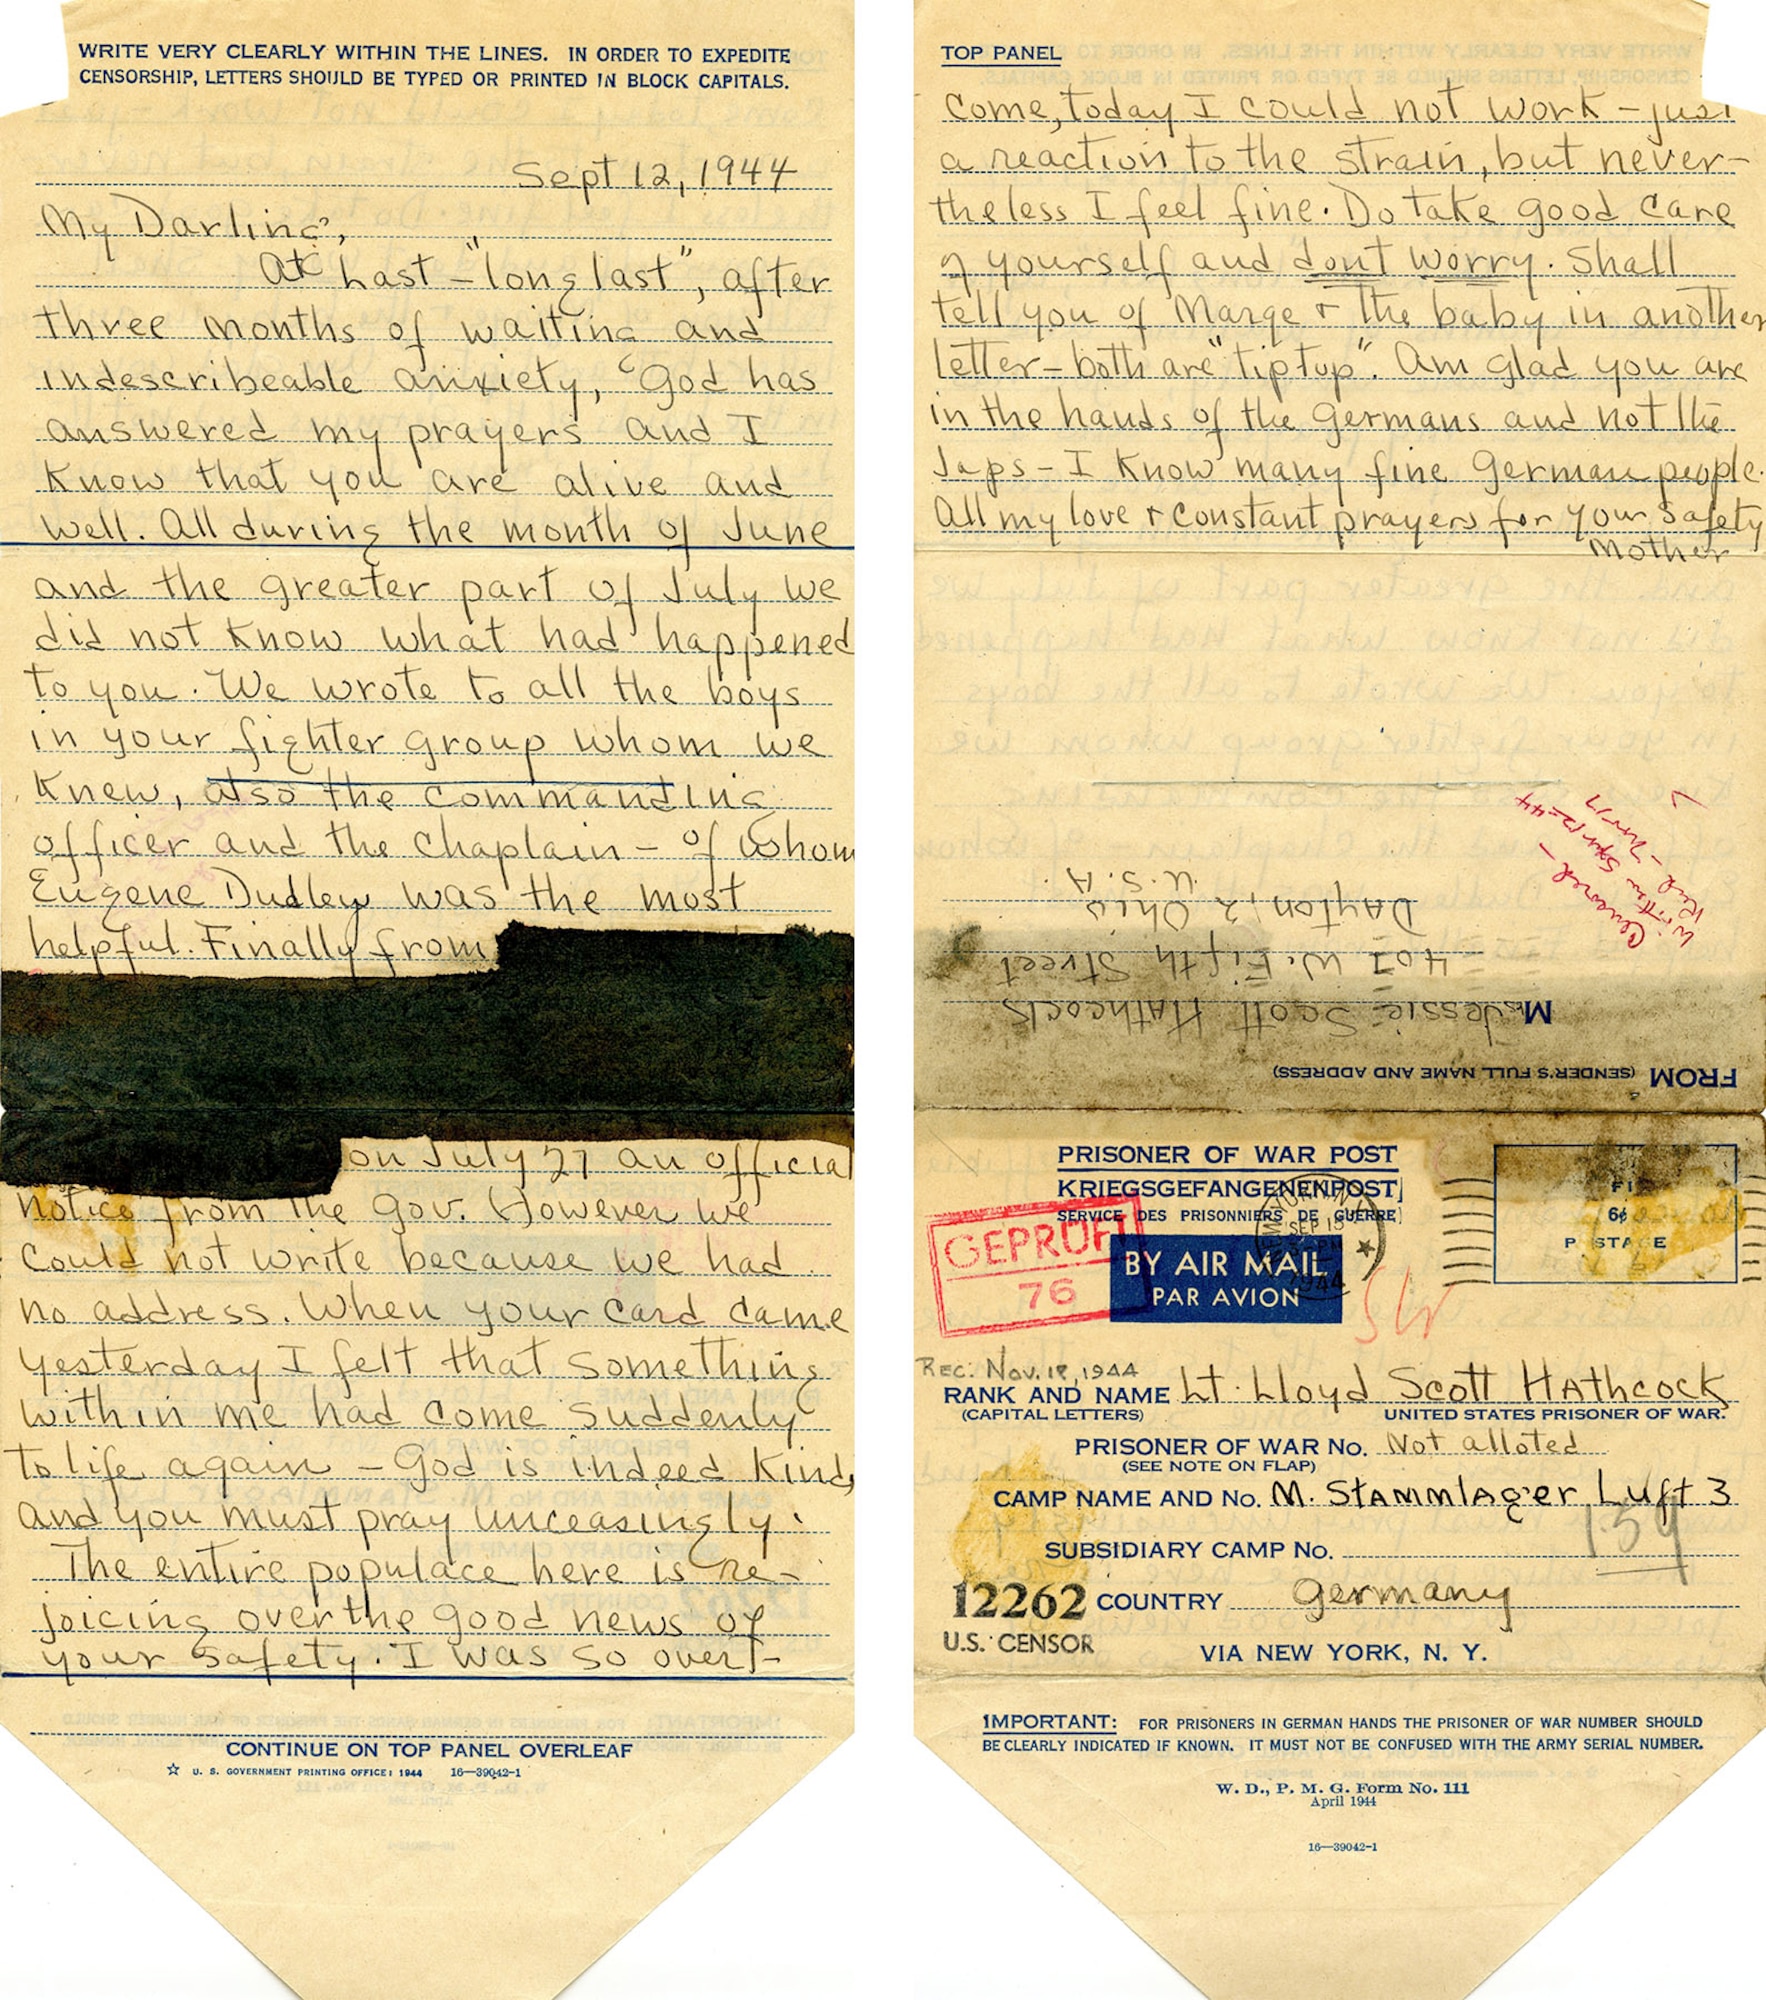 WRITE VERY CLEARLY WITHIN THE LINES. IN ORDER TO EXPEDITE
CENSORSHIP, LETTERS SHOULD BE TYPED OR PRINTED IN BLOCK CAPITALS.
Sept 12, 1944
My Darling,
At Last – "long last", after
three months of waiting and
indescribeable anxiety, God has
answered my prayers and I
know that you are alive and
well. All during the month of June
and the greater part of July we
did not know what had happened
to you. We wrote to all the boys
in your fighter group whom we
knew, also the commanding
officer and the chaplain – of whom
Eugene Dudley was the most
helpful. Finally from
on July 27 an official
notice from the Gov. However we
could not write because we had
no address. When your card came
yesterday I felt that something
within me had come suddenly
to life again – God is indeed kind,
and you must pray unceasingly.
The entire populace here is re-
joicing over the good news of
your safety. I was so over-
CONTINUE ON TOP PANEL OVERLEAF
☆ U. S. GOVERNMENT PRINTING OFFICE: 1944 16—39042-1
TOP PANEL
come, today I could not work – just
a reaction to the strain, but never-
theless I feel fine. Do take good care
of yourself and dont worry. Shall
tell you of Marge + the baby in another
letter – both are "tiptop". Am glad you are
in the hands of the Germans and not the
Japs – I know many fine German people.
All my love + constant prayers for your safety
Mother
Censored –
Written Sept 12-44
Recd –
U.S.A.
Dayton, 2 Ohio
401 W. Fifth Street
Mrs Jessie Scott Hathcock
FROM (SENDER'S FULL NAME AND ADDRESS)
PRISONER OF WAR POST
KRIEGSGEFANGENENPOST
SERVICE DES PRISONNIERS DE GUERRE
GEPRÜFT
76
BY AIR MAIL
PAR AVION
SEP 13
1944
6¢
POSTAGE
REC. Nov. 18, 1944
RANK AND NAME Lt. Lloyd Scott HAthcock
(CAPITAL LETTERS) UNITED STATES PRISONER OF WAR.
PRISONER OF WAR No. Not alloted
(SEE NOTE ON FLAP)
CAMP NAME AND No. M. STAMMLAGER Luft 3
159
SUBSIDIARY CAMP No.
12262 COUNTRY Germany
U.S. CENSOR
VIA NEW YORK, N. Y.
IMPORTANT: FOR PRISONERS IN GERMAN HANDS THE PRISONER OF WAR NUMBER SHOULD
BE CLEARLY INDICATED IF KNOWN. IT MUST NOT BE CONFUSED WITH THE ARMY SERIAL NUMBER.
W. D., P. M. G. Form No. 111
April 1944
16—39042-1